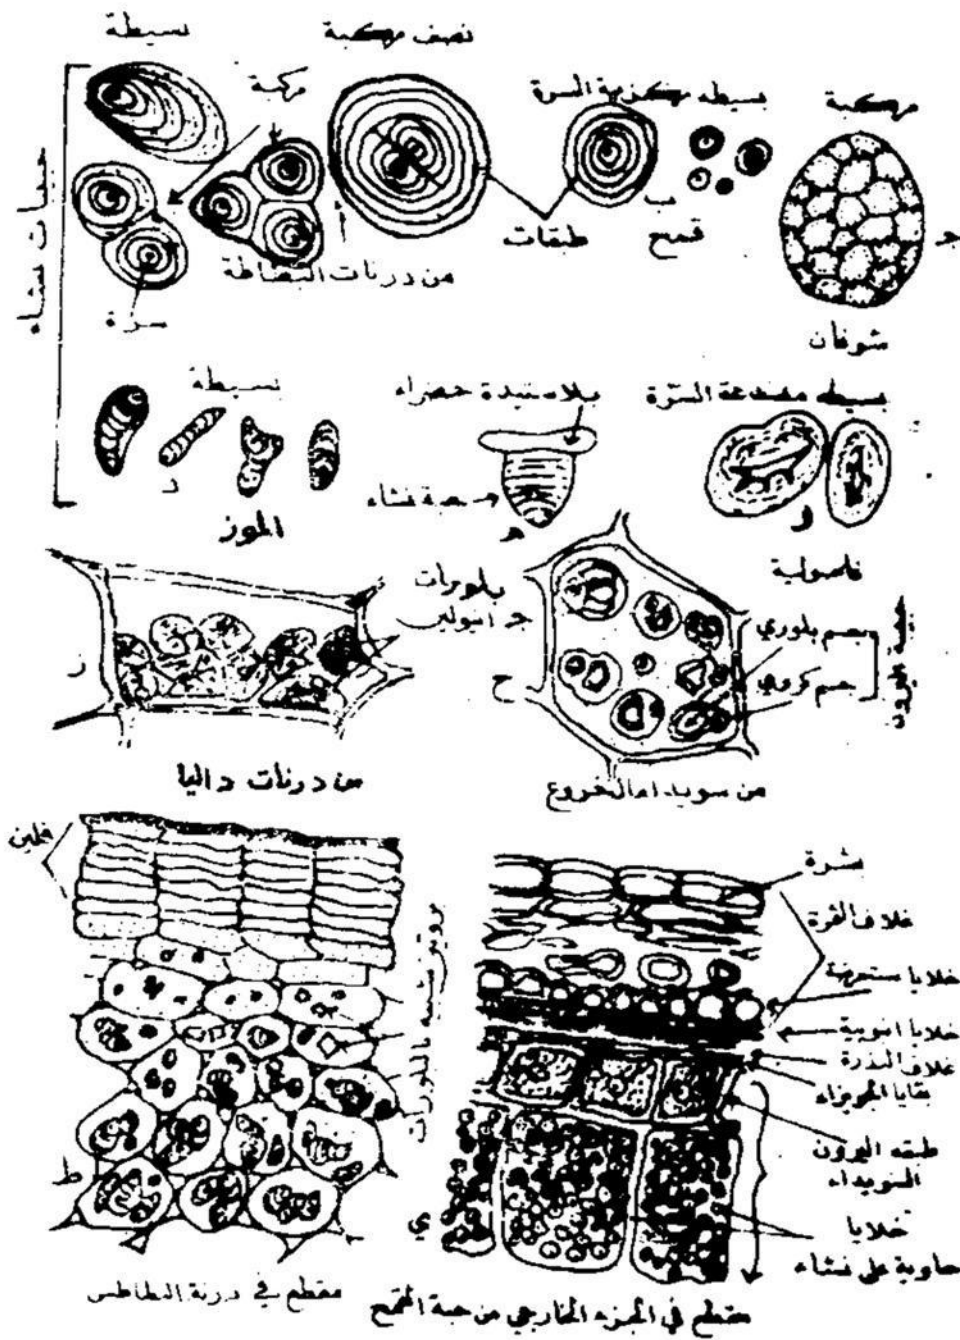 بسيطة
نصف مركبة
مركبة
بسيطه مركزية السرة
مركبة
حبيبات نشاء
ب
قمح
طبقات
جـ
من درنات البطاطة
سرة
شوفان
بسيطة
بلاستيدة خضراء
بسيطه متصدعة السرة
د
حبة نشاء
هـ
و
الموز
فاصولية
بلورات
جـ انيولين
ز
ح
جسم بلوري
جسم كروي
حبيبة اليرون
من درنات داليا
من سويداء الخروع
فلين
بشرة
غلاف الثمرة
بروتين شبيه بالبلورات
خلايا مستعرضة
خلايا انبوبية
غلاف البذرة
بقايا الجويزاء
طبقه اليرون
السويداء
ط
ي
خلايا
حاوية على نشاء
مقطع في درنة البطاطس
مقطع في الجزء الخارجي من حبة القمح